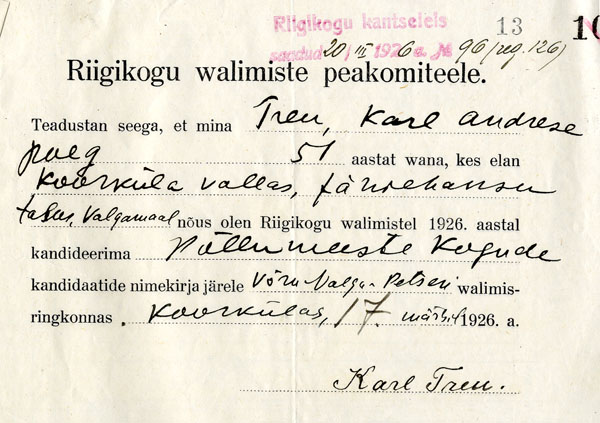 Riigikogu kantseleis 13 10
saadud 20 III 1926 a. № 96 (reg. 126)
Riigikogu walimiste peakomiteele.
Teadustan seega, et mina Tren, Karl Andrese
poeg 51 aastat wana, kes elan
Koorküla vallas, Järvehansu
talus, Valgamaal nõus olen Riigikogu walimistel 1926. aastal
kandideerima Põllumeeste Kogude
kandidaatide nimekirja järele Võru-Valga-Petseri walimis-
ringkonnas. Koorkülas, 17. märtsil 1926. a.
Karl Tren.